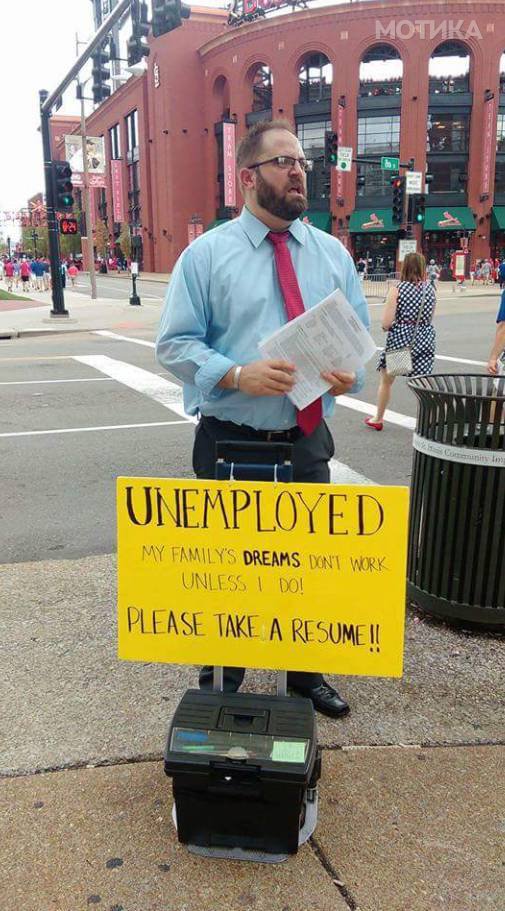 МОТИКА
TEAM STORE
UNEMPLOYED
MY FAMILY'S DREAMS DON'T WORK
UNLESS I DO!
PLEASE TAKE A RESUME!!